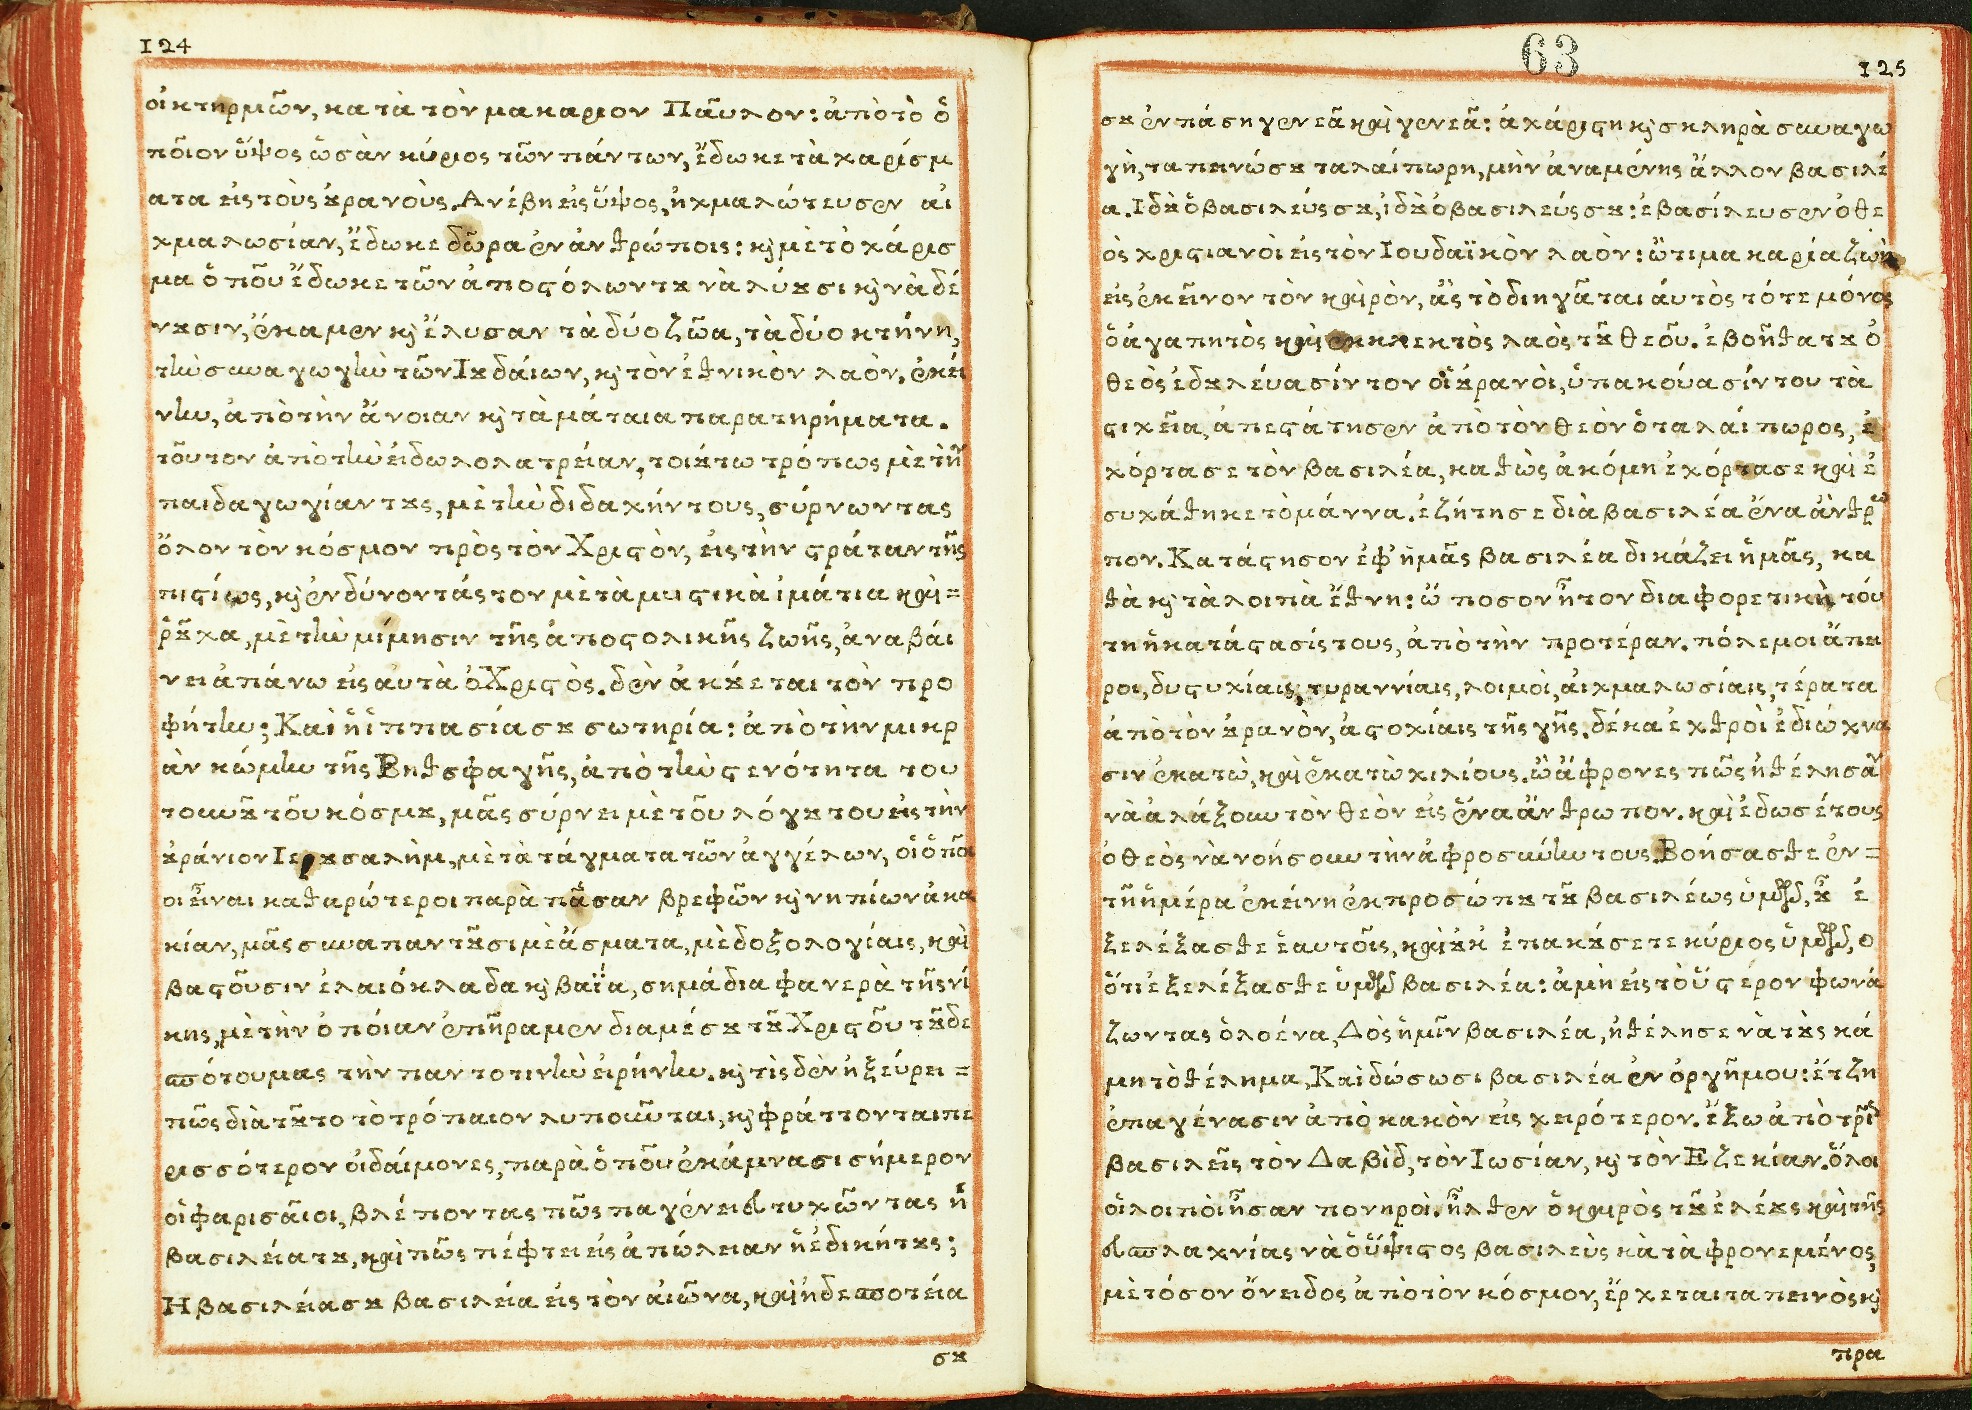 124
οἰκτηρμῶν, κατὰ τὸν μακαριον Παῦλον: ἀπὸ τὸ ὁ
ποῖον ὕψος ὡσὰν κύριος τῶν πάντων, ἔδωκε τὰ χαρίσμ
ατα εἰς τοὺς ȣρανοὺς. Ανέβη εἰς ὕψος, ἠχμαλώτευσεν αἰ
χμαλωσίαν, ἔδωκε δῶρα ἐν ἀνθρώποις: κ̀ μὲ τὸ χάρισ
μα ὁποῦ ἔδωκε τῶν ἀποϛόλων τȣ νὰ λύȣσι κ̀ νὰ δέ
νȣσιν, ἔκαμεν κ̀ ἔλυσαν τὰ δύο ζῶα, τὰ δύο κτήνη,
τὴν συναγωγὴν τῶν Ιȣδάιων, κ̀ τὸν ἐθνικὸν λαὸν, ἐκεί
νην, ἀπὸ τὴν ἄνοιαν κ̀ τὰ μάταια παρατηρήματα.
τοῦτον ἀπὸ τὴν εἰδωλολατρείαν, τοιȣτωτρόπως μὲ τὴν
παιδαγωγίαν τȣς, μὲ τὴν διδαχήν τους, σύρνωντας
ὅλον τὸν κόσμον πρὸς τὸν Χριϛὸν, εἰς τὴν ϛράταν τῆς
πίϛεως, κ̀ ἐνδύνοντάς τον μὲ τὰ μυϛικὰ ἱμάτια καὶ =
ῥȣχα, μὲ τὴν μίμησιν τῆς ἀποϛολικῆς ζωῆς, ἀναβάι
νει ἀπάνω εἰς αὐτὰ ὁ Χριϛὸς. δὲν ἀκȣεται τὸν προ
φήτην; Καὶ ἡ ἱππασία σȣ σωτηρία: ἀπὸ τὴν μικρ
ὰν κώμην τῆς Βηθσφαγῆς, ἀπὸ τὴν ϛενότητα του
τουνȣ τοῦ κόσμȣ, μᾶς σύρνει μὲ τοῦ λόγȣ του εἰς τὴν
ȣράνιον Ιερȣσαλὴμ, μὲ τὰ τάγματα τῶν ἀγγέλων, οἱ ὁποῖ
οι εἶναι καθαρώτεροι παρὰ πᾶσαν βρεφῶν κ̀ νηπίων ἀκα
κίαν, μᾶς συναπαντȣσι μὲ ἄσματα, μὲ δοξολογίαις, καὶ
βαϛοῦσιν ἐλαιόκλαδα κ̀ βαΐα, σημάδια φανερὰ τῆς νί
κης, μὲ τὴν ὁπόιαν ἐπῆραμεν διαμέσȣ τȣ Χριϛοῦ τȣ δε
σπότου μας τὴν παντοτινὴν εἰρήνην. κ̀ τίς δὲν ἠξεύρει =
πῶς διὰ τȣτο τὸ τρόπαιον λυποιῦνται, κ̀ φράττονται πε
ρισσότερον οἱ δαίμονες, παρὰ ὁποῦ ἐκάμνασι σήμερον
οἱ φαρισαῖοι, βλέποντας πῶς παγένει εὐτυχῶντας ἡ
βασιλεία τȣ, καὶ πῶς πέφτει εἰς ἀπώλειαν ἡ ἐδικήτȣς;
Η βασιλεία σȣ βασιλεία εἰς τὸν αἰῶνα, καὶ ἡ δεσποτεία
σȣ
63
125
σȣ ἐν πάση γενεᾶ καὶ γενεᾶ: ἀχάριϛη κ̀ σκληρὰ συναγω
γὴ, ταπεινώσȣ ταλαίπωρη, μὴν ἀναμένης ἄλλον βασιλέ
α. Ιδȣ ὁ βασιλεύς σȣ, ἰδȣ ὁ βασιλεύς σȣ: ἐβασίλευσεν ὁ θε
ὸς χριϛιανοὶ εἰς τὸν Ιουδαϊκὸν λαὸν: ὢ τι μακαρία ζωὴ
εἰς ἐκεῖνον τὸν καιρὸν, ἂς τὸ διηγᾶται ἀυτὸς τότε μόνος
ὁ ἀγαπητὸς καὶ ἐκλεκτὸς λαὸς τȣ θεοῦ. ἐβοῆθα τȣ ὁ
θεὸς ἐδȣλέυασίν τον οἱ ȣρανοὶ, ὑπακούασίν του τὰ
ϛιχεῖα, ἀπεϛάτησεν ἀπὸ τὸν θεὸν ὁ ταλάιπωρος, ἐ
χόρτασε τὸν βασιλέα, καθὼς ἀκόμη ἐχόρτασε καὶ ἐ
συχάθηκε τὸ μάννα. ἐζήτησε διὰ βασιλέα ἕνα ἄνθρω
πον. Κατάϛησον ἐφ' ἡμᾶς βασιλέα δικάζει ἡμᾶς, κα
θὰ κ̀ τὰ λοιπὰ ἔθνη: ὢ ποσον ἦτον διαφορετικὴ τού
τη ἡ κατάϛασίς τους, ἀπὸ τὴν προτέραν. πόλεμοι ἄπει
ροι, δυϛυχίαις, τυραννίαις, λοιμοὶ, ἀιχμαλωσίαις, τέρατα
ἀπὸ τὸν ȣρανὸν, ἀϛοχίαις τῆς γῆς. δέκα ἐχθροὶ ἐδιώχνα
σιν ἑκατὼ, καὶ ἑκατὼ χιλίους. ὢ ἄφρονες πῶς ἠθέλησαν
νὰ ἀλάξουν τὸν θεὸν εἰς ἕνα ἄνθρωπον. καὶ ἔδωσέ τους
ὁ θεὸς νὰ νοήσουν τὴν ἀφροσύνην τους. Βοήσασθε ἐν =
τῆ ἡμέρα ἐκείνη ἐκ προσώπȣ τȣ βασιλέως ὑμῶν, ȣ̃ ἐ
ξελέξασθε ἑαυτοῖς, καὶ ȣκ ἐπακȣσετε κύριος ὑμῶν, ο
ὅτι ἐξελέξασθε ὑμῶν βασιλέα: ἀμὴ εἰς τὸ ὕϛερον φωνά
ζωντας ὁλοένα, Δὸς ἡμῖν βασιλέα, ἠθέλησε νὰ τȣς κά
μη τὸ θέλημα, Καὶ δώσωσι βασιλέα ἐν ὀργῆ μου: ἔτζη
ἐπαγένασιν ἀπὸ κακὸν εἰς χειρότερον. ἔξω ἀπὸ τρεῖς
βασιλεῖς τὸν Δαβὶδ, τὸν Ιωσίαν, κ̀ τὸν Εζεκίαν. ὅλοι
οἱ λοιποὶ ἦσαν πονηροὶ. ἦλθεν ὁ καιρὸς τȣ ἐλέȣς καὶ τῆς
εὐσπλαχνίας νὰ ὁ ὕψιϛος βασιλεὺς κὰ τὰ φρονεμένος,
μὲ τόσον ὄνειδος ἀπὸ τὸν κόσμον, ἔρχεται ταπεινὸς κ̀
πρα